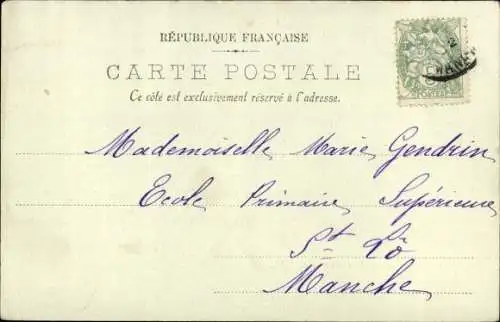 RÉPUBLIQUE FRANÇAISE
CARTE POSTALE
Ce côté est exclusivement réservé à l'adresse.
Mademoiselle Marie Gendrin
Ecole Primaire Supérieure
St Lô
Manche